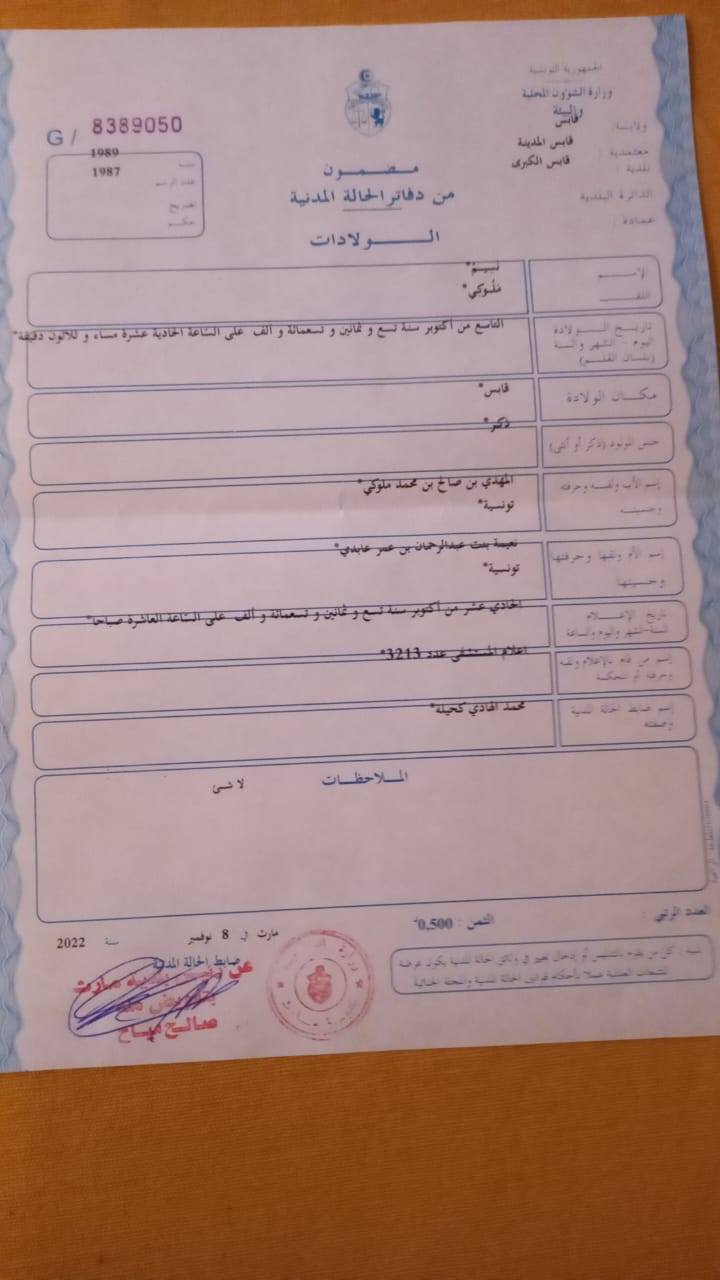 الجمهورية التونسية
وزارة الشؤون المحلية
والبيئة
ولاية : قابس
معتمدية : قابس المدينة
بلدية : قابس الكبرى
الدائرة البلدية
عمادة :
G / 8389050
سنة 1989
عدد الرسم 1987
تصريح
حكم
مضمون
من دفاتر الحالة المدنية
الولادات
الإسم
اللقب
مَلُوكِي*
تاريخ الولادة
اليوم - الشهر والسنة
(بلسان القلم)
التاسع من أكتوبر سنة تسع و ثمانين و تسعمائة و ألف على الساعة الحادية عشرة مساء و ثلاثون دقيقة*
مكان الولادة
قابس*
جنس المولود (ذكر أو أنثى)
ذكر*
إسم الأب ولقبه وحرفته
وجنسيته
المهدي بن صالح بن محمد ملوكي*
تونسية*
إسم الأم ولقبها وحرفتها
وجنسيتها
نعيمة بنت عبدالرحمان بن عمر عابدي*
تونسية*
تاريخ الإعلام
السنة-الشهر واليوم والساعة
الحادي عشر من أكتوبر سنة تسع و ثمانين و تسعمائة و ألف على الساعة العاشرة صباحا*
إسم من قام بالإعلام ولقبه
وحرفته أو المحكمة
اعلام المستشفى عدد 3213*
إسم ضابط الحالة المدنية
وصفته
محمد الهادي كحيلة*
الملاحظات
لا شئ
العدد الرتبي :
الثمن : 0,500د
مارث في 8 نوفمبر سنة 2022
ضابط الحالة المدنية
تنبيه : كل من يقوم بالتدليس أو إدخال تغيير في وثائق الحالة المدنية يكون عرضة
للتتبعات العدلية عملا بأحكام قوانين الحالة المدنية والمجلة الجنائية
عن رئيس بلدية مارث
بتفويض منه
صالح مباح